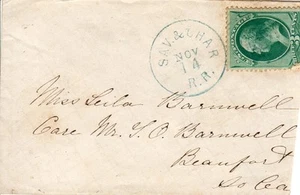 SAV. & CHAR
NOV
14
R.R.
Miss Leila Barnwell
Care Mr. T. O. Barnwell
Beaufort
So Ca